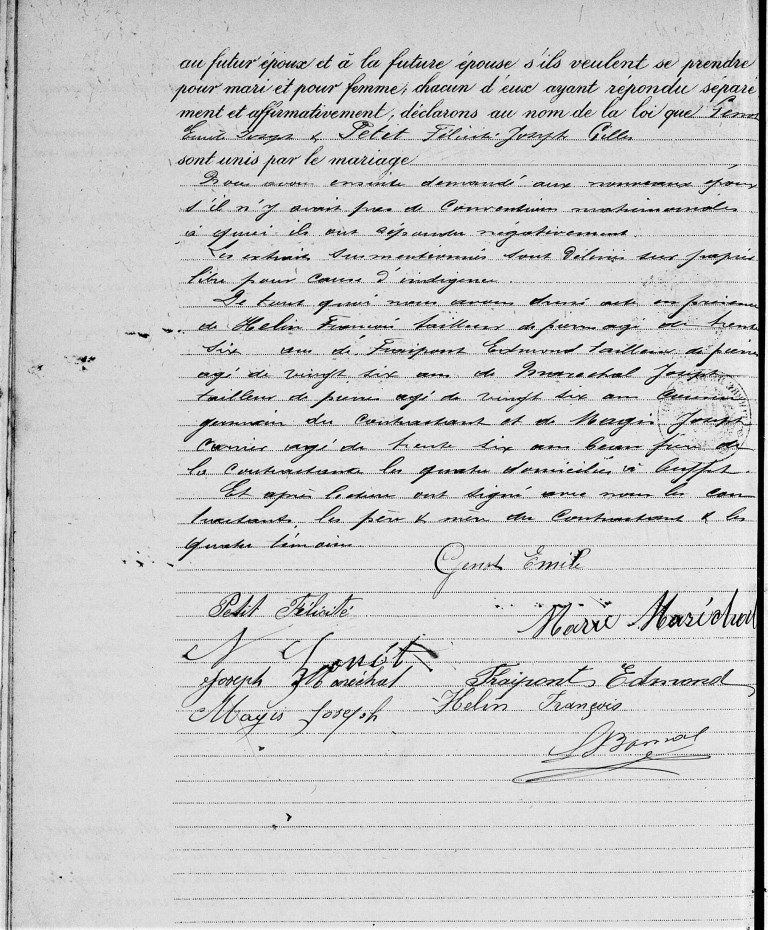 au futur époux et à la future épouse s'ils veulent se prendre
pour mari et pour femme; chacun d'eux ayant répondu séparé
ment et affirmativement, déclarons au nom de la loi que Genot
Emile Joseph & Petit Félicité Joseph Gilles
sont unis par le mariage
Nous avons ensuite demandé aux nouveaux époux
s'il n'y avait pas de Conventions matrimoniales
à quoi ils ont répondu négativement.
Les extraits susmentionnés sont délivrés sur papier
libre pour cause d'indigence.
De tout quoi nous avons dressé acte en présence
de Helin François tailleur de pierres agé de trente
six ans de Fraipont Edmond tailleur de pierres
agé de vingt six ans de Maréchal Joseph
tailleur de pierres agé de vingt six ans Cousin
germain du Contractant et de Magis Joseph
Carrier agé de trente six ans beau frère de
la Contractante les quatre domiciliés à
Et après lecture ont signé avec nous les con
tractants, les père & mère du Contractant & les
quatre témoins
Genot Emile
Petit Félicité
Marie Maréchal
N Genot
Joseph Maréchal Fraipont Edmond
Magis Joseph Helin François